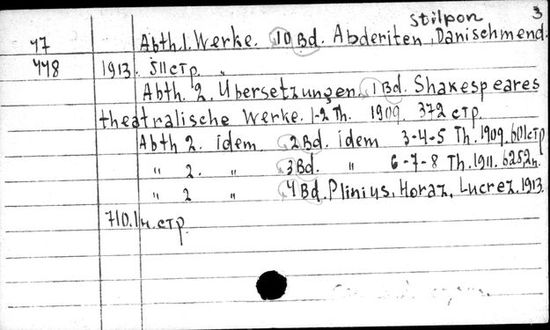 stilpon 3
47 Abth.1. Werke. 10 Bd. Abderiten, Danischmend.
448 1913. 511 стр. "
Abth. 2. Übersetzungen 1 Bd. Shakespeares
theatralische Werke. 1-2 Th. 1909. 372 стр.
Abth 2. idem. 2 Bd. idem 3-4-5 Th. 1909. 601 стр
" 2. " 3 Bd. " 6-7-8 Th. 1911. 625, 2 н.
" 2 " 4 Bd. Plinius, Horaz, Lucrez. 1913.
710. 1 н. стр.